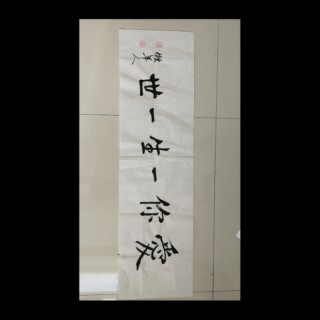 愛你一生一世